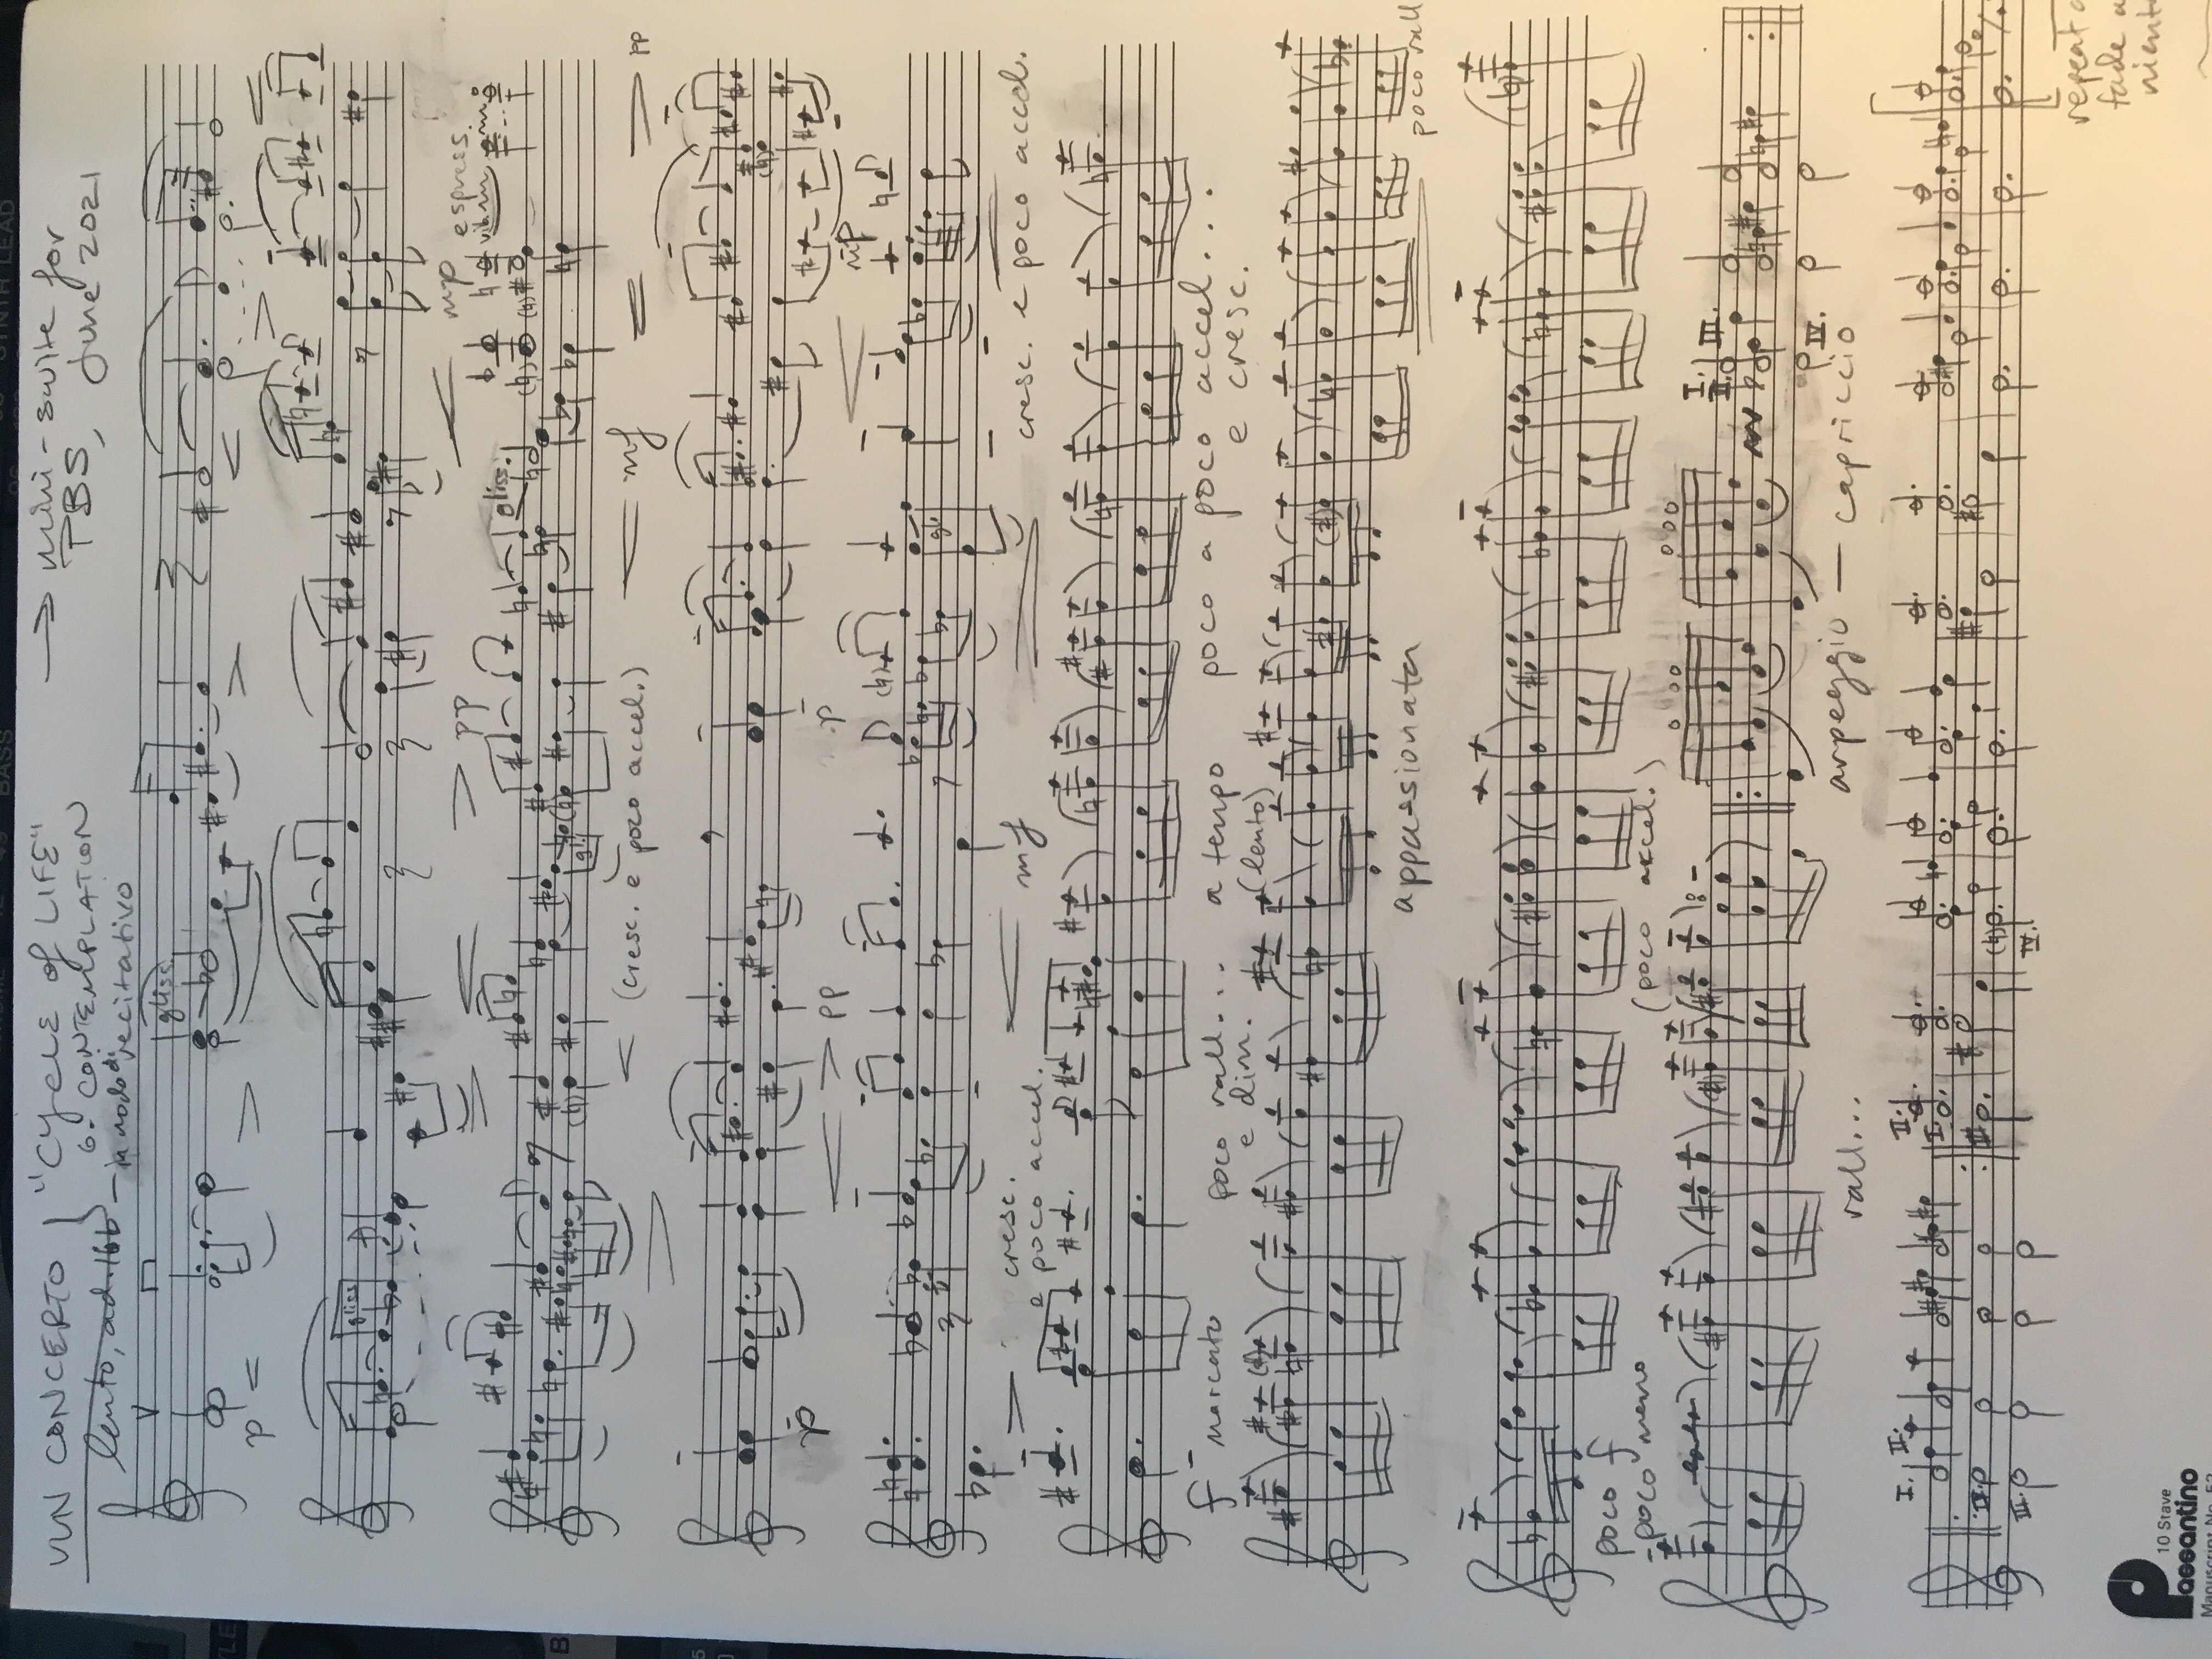 BASS
SYNTH LEAD
VLN CONCERTO
"Cycle of LIFE"
6. CONTEMPLATION
→ mini-suite for
PBS, June 2021
lento, ad lib — in modo di recitativo
gliss.
p
gliss
pp
mp
espress.
gliss.
vib.
gl.
(cresc. e poco accel.)
mf
pp
p
pp
p
mp
gl.
f
cresc.
e poco accel.
mf
cresc. e poco accel.
f marcato
poco rall...
e dim.
a tempo
(lento)
poco a poco accel...
e cresc.
appassionata
poco rall
poco f
-poco meno
(poco accel.)
I.
II.
III.
IV.
rall...
arpeggio — capriccio
I.
II.
II.
I.
IV.
III.
III
IV.
repeat
fade
niente
10 Stave
Passantino
Manuscript No. 52